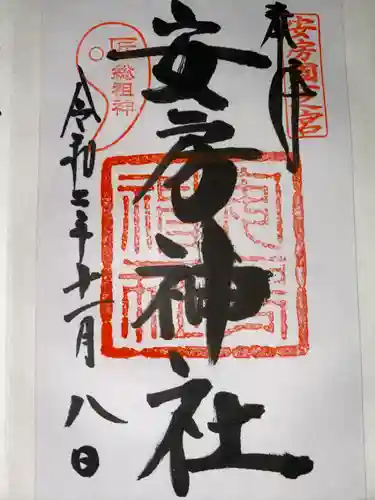 奉拝
安房國一之宮
安房神社
安房神社
日本総祖神
令和二年十一月八日